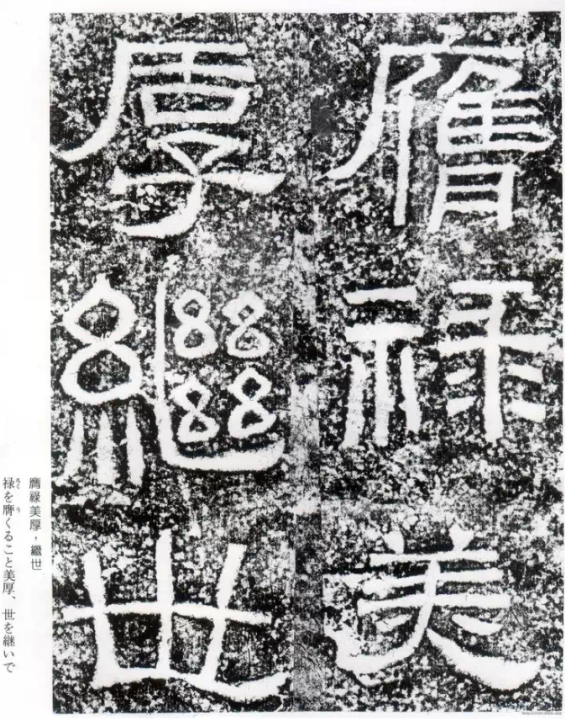 膺祿美
厚繼世
膺祿美厚，繼世
禄を膺くること美厚、世を継いで